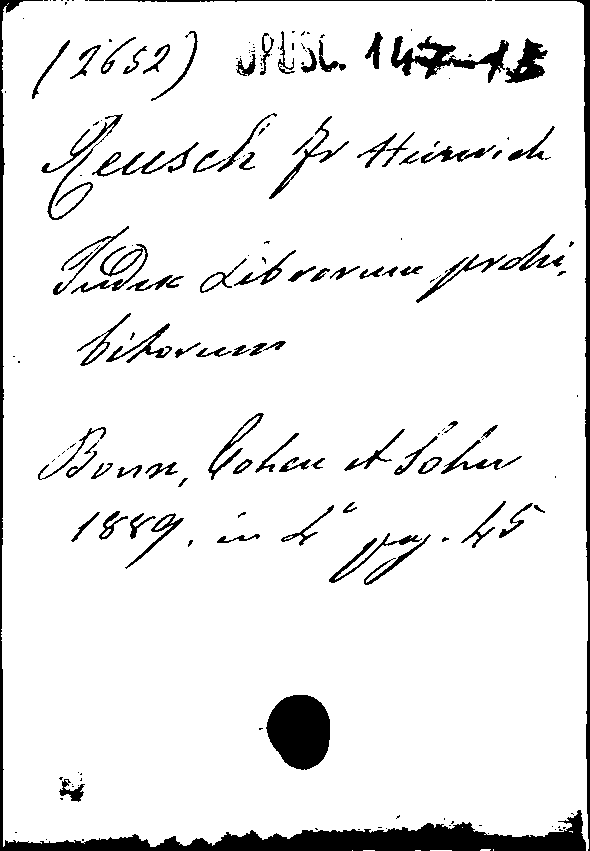 (2652) OPUSC. 147-15
Reusch Fr Heinrich
Index Librorum prohi,
bitorum
Bonn, Cohen et Sohn
1889. in 4° pag. 45